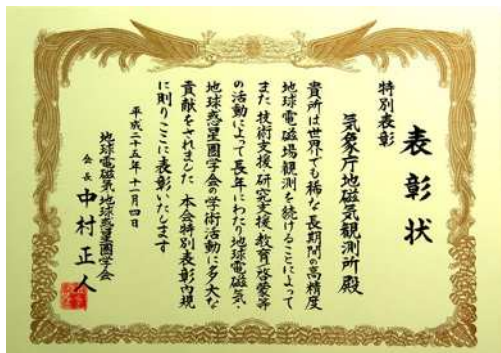 表彰状
特別表彰
気象庁地磁気観測所殿
貴所は世界でも稀な長期間の高精度
地球電磁場観測を続けることによって
また技術支援研究支援教育啓蒙等
の活動によって長年にわたり地球電磁気・
地球惑星圏学会の学術活動に多大な
貢献をされました 本会特別表彰内規
に則りここに表彰いたします
平成二十五年十一月四日
地球電磁気・地球惑星圏学会
会長 中村正人